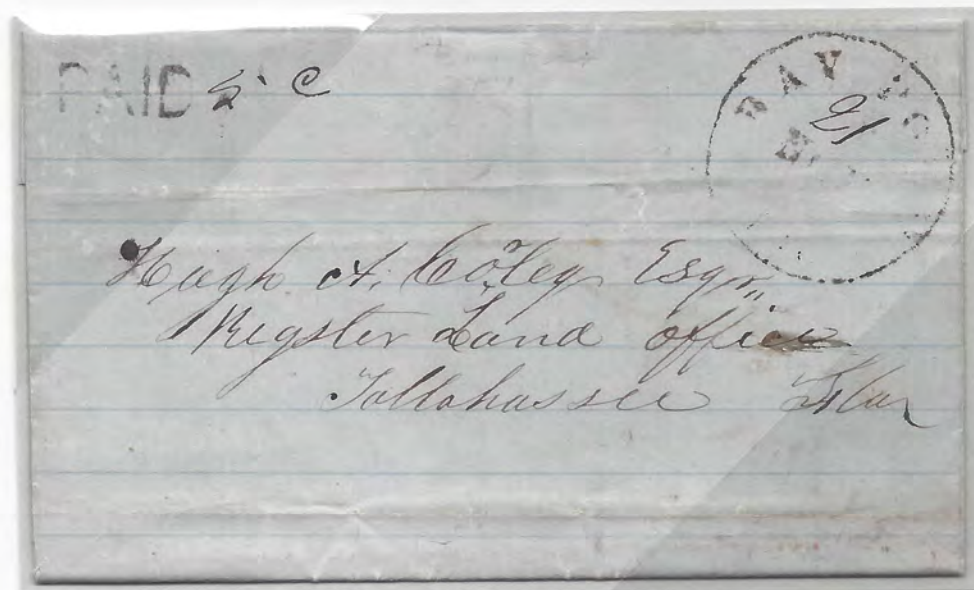 PAID 5 C
21
Hugh A. Coley Esqr
Regster Land office
Tallahassee Flor